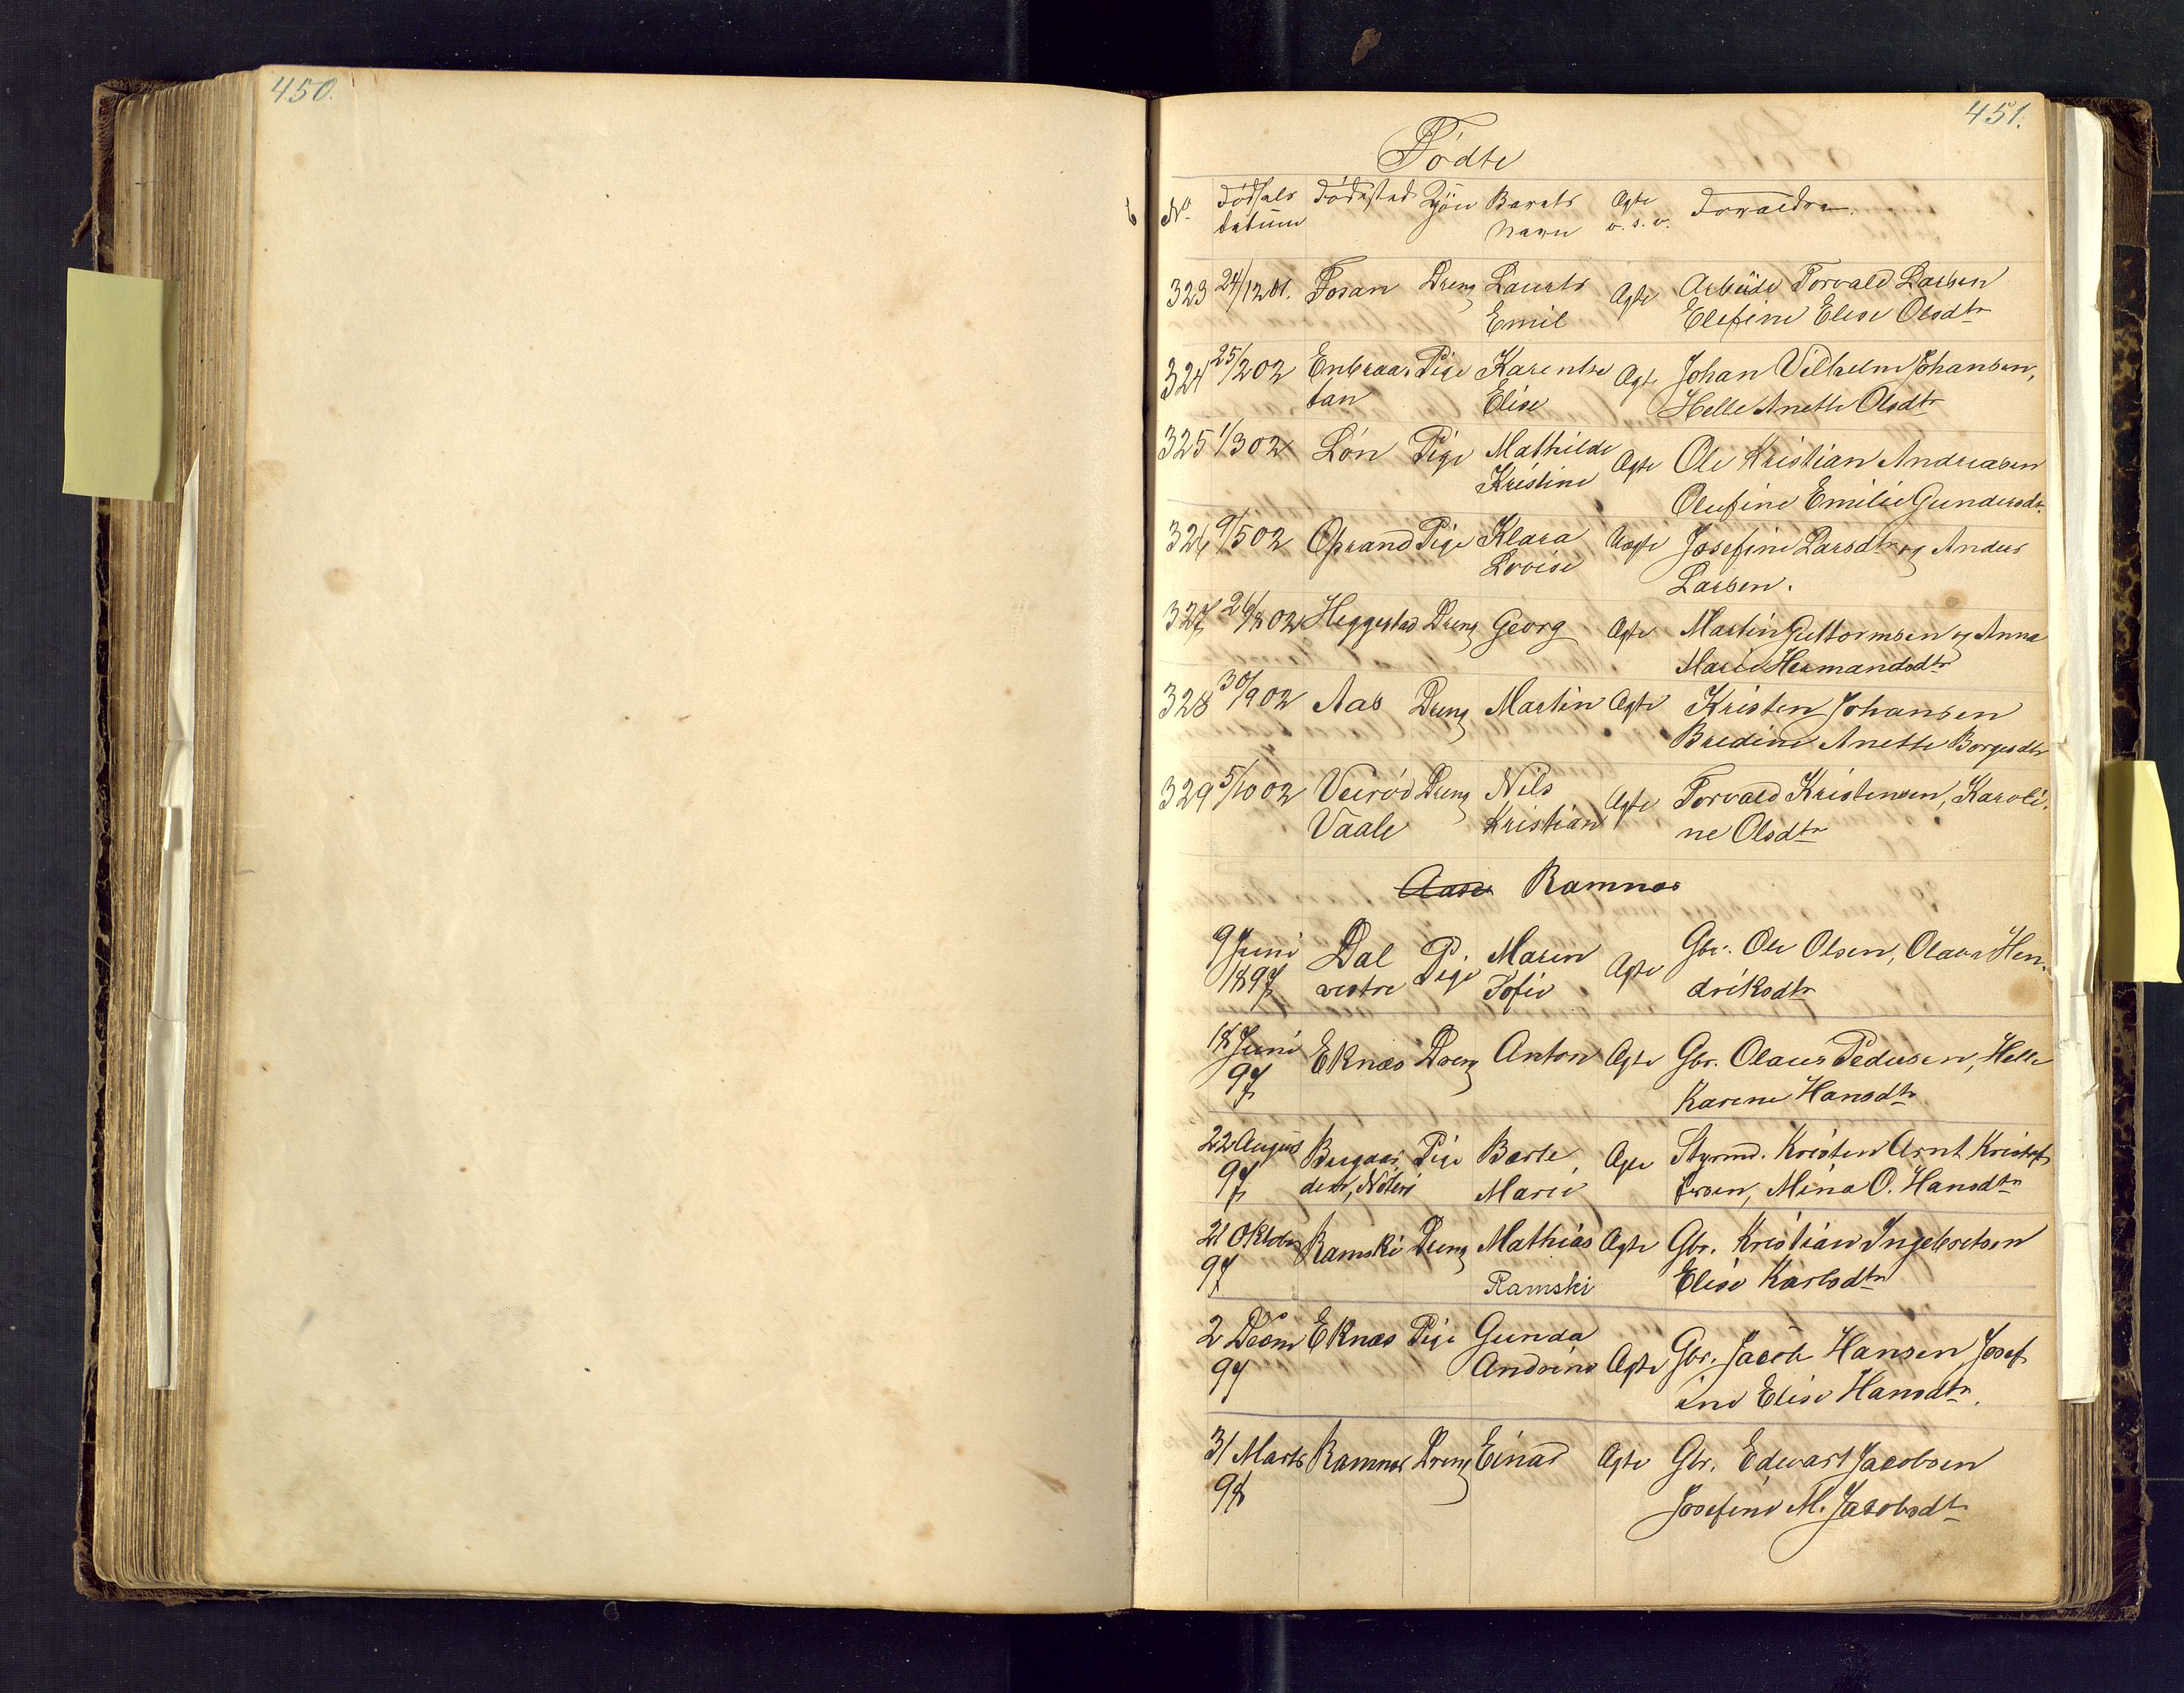 450.
451.
Födte
No Födsels Födested Kjön Barnets Ægte Forældre.
datum Navn o. s. v.
323 24/12 01. Fosan Dreng Laurits Ægte Arbeider Torvald Larsen
Emil Elefine Elise Olsdtr
324 25/2 02 Enbraa- Pige Karentse Ægte Johan Vilhelm Johansen,
tan Elise Helle Anette Olsdtr
325 1/3 02 Lön Pige Mathilde Ægte Ole Kristian Andreasen
Kristine Olufine Emilie Gundersdr.
326 9/5 02 Oprand Pige Klara Uægte Josefine Larsdtr og Anders
Lovise Larsen.
327 26/8 02 Heggestad Dreng Georg Ægte Martin Guttormsen og Anna
Marie Hermandsdtr
328 30/9 02 Aas Dreng Martin Ægte Kristen Johansen
Bredine Anette Borgersdtr
329 5/10 02 Veiröd Dreng Nils Ægte Torvald Kristensen, Karoli-
Vaale Kristian ne Olsdtr
Ramnæs
9 Juni Dal Pige Maren Ægte Gbr. Ole Olsen, Olava Hen-
1897 vestre Sofie driksdtr
18 Juni Eknæs Dreng Anton Ægte Gbr. Olaus Pedersen, Helle
97 Karene Hansdtr
22 August Pige Berte Ægte Styrmd. Kristen Arnt Kristof
97 Nöteri Marie fersen, Mina O. Hansdtr
21 Oktober Ramski Dreng Mathias Ægte Gbr. Kristian Ingebretsen
97 Ramski Elise Karlsdtr
2 Decem Eknæs Pige Gunda Ægte Gbr. Jacob Hansen Josef
97 Andrine ine Elise Hansdtr.
31 Marts Ramnæs Dreng Einar Ægte Gbr. Edvart Jacobsen
98 Josefine M. Jacobsdtr